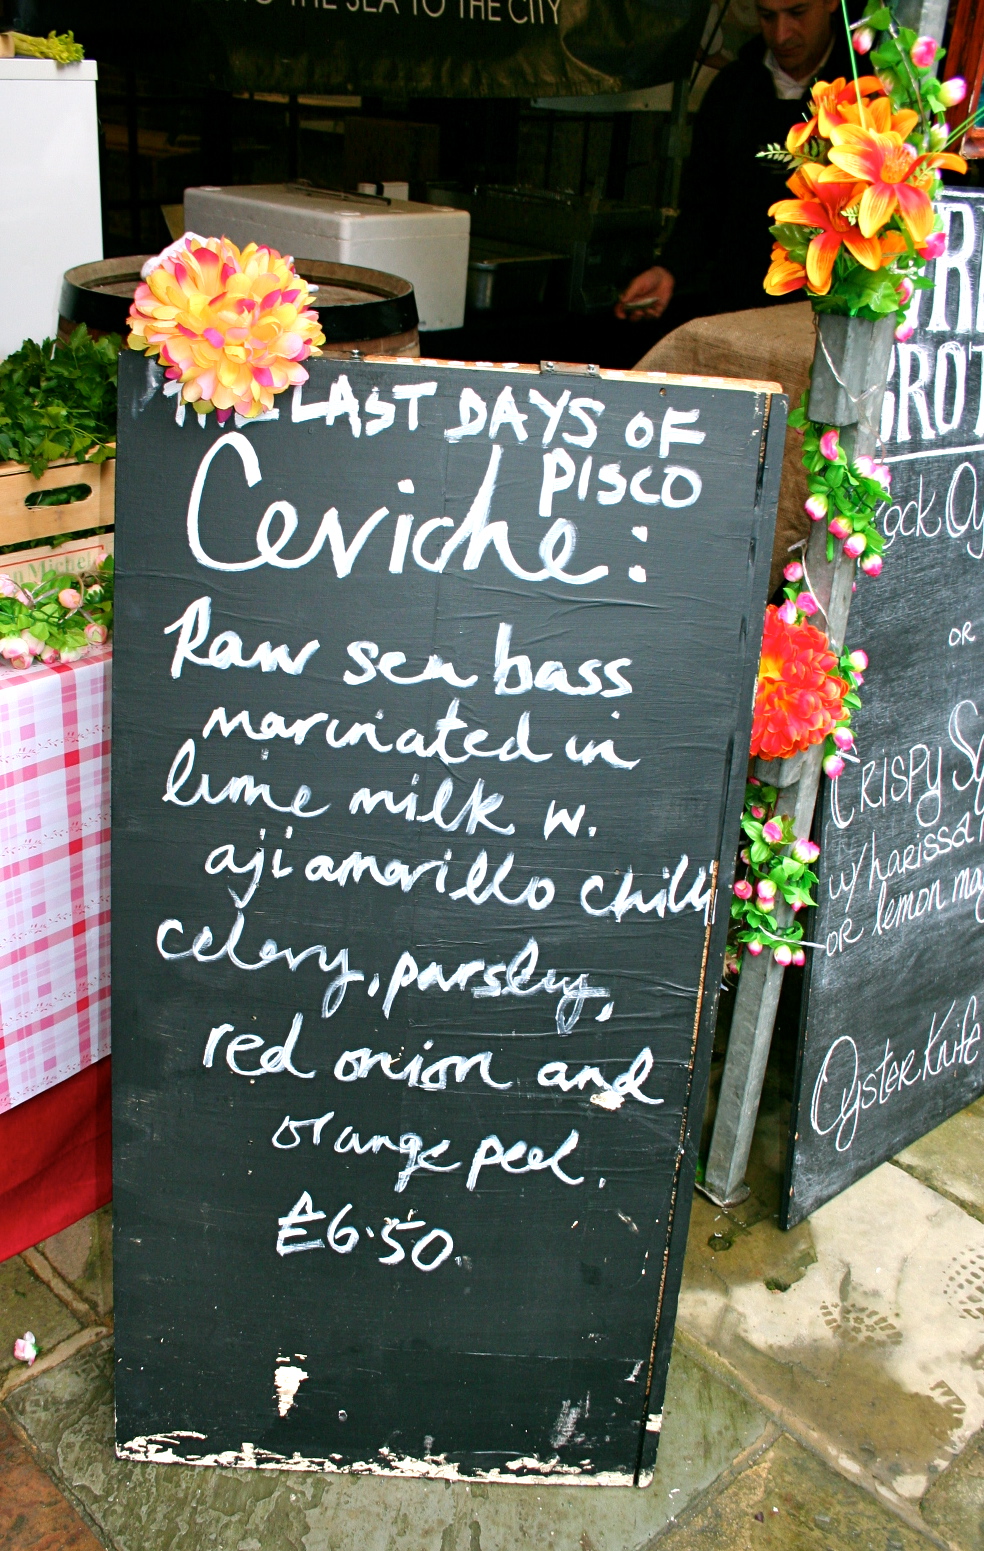 THE SEA TO THE CITY
THE LAST DAYS OF
PISCO
Ceviche:
Raw sea bass
marinated in
lime milk w.
aji amarillo chilli
celery, parsley,
red onion and
orange peel.
£6.50.
OR
CRISPY
w/ harissa
OR lemon
Oyster Knife